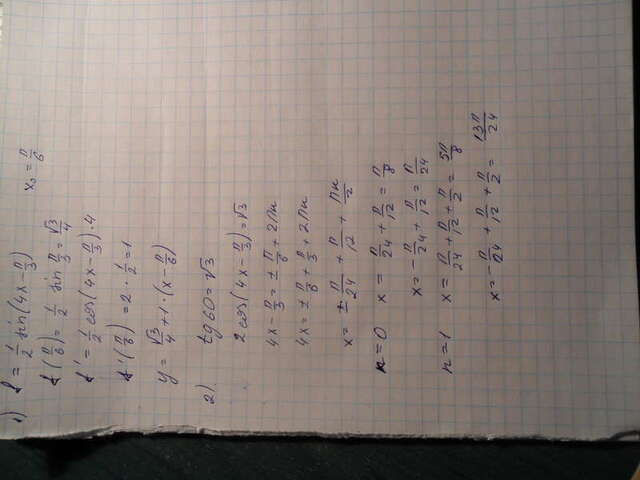 1) f = 1/2 sin(4x - π/3)   x₀ = π/6
f(π/6) = 1/2 sin π/3 = √3/4
f' = 1/2 cos(4x - π/3)·4
f'(π/6) = 2·1/2 = 1
y = √3/4 + 1·(x - π/6)
2) tg60 = √3
2cos(4x - π/3) = √3
4x - π/3 = ± π/6 + 2πn
4x = ± π/6 + π/3 + 2πn
x = ± π/24 + π/12 + πn/2
n = 0   x = π/24 + π/12 = π/8
x = -π/24 + π/12 = π/24
n = 1   x = π/24 + π/12 + π/2 = 5π/8
x = -π/24 + π/12 + π/2 = 13π/24